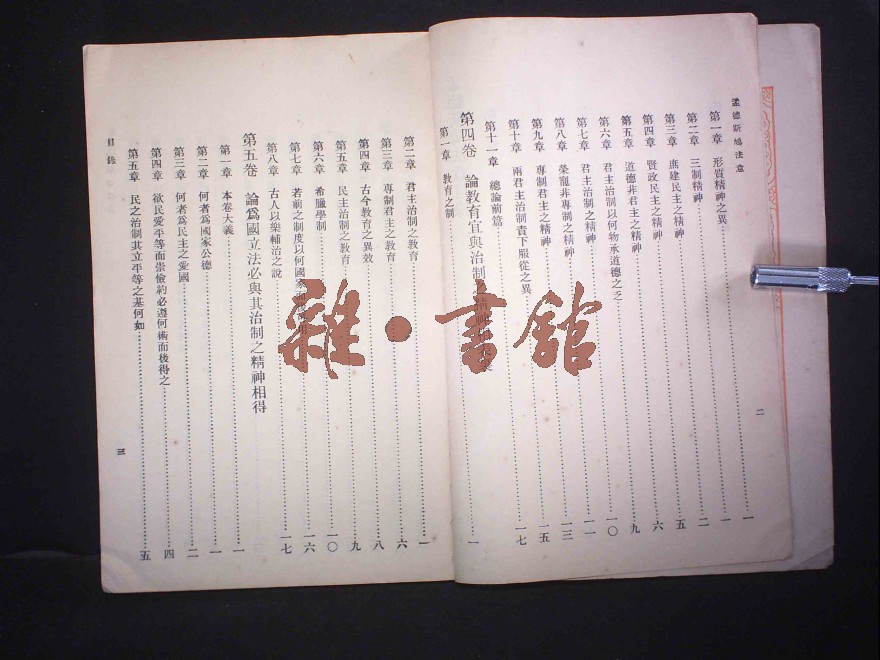 孟德斯鳩法意
第一章 形質精神之異 一
第二章 三制精神 二
第三章 庶建民主之精神 五
第四章 賢政民主之精神 六
第五章 道德非君主之精神 九
第六章 君主治制以何物承道德之乏 一〇
第七章 君主治制之精神 一一
第八章 榮寵非專制之精神 一三
第九章 專制君主之精神 一五
第十章 兩君主治制責下服從之異 一七
第十一章 總論前篇
第四卷 論教育宜與治制之精神 一
第一章 教育之制 一
二
第二章 君主治制之教育 六
第三章 專制君主之教育 八
第四章 古今教育之異效 九
第五章 民主治制之教育 一〇
第六章 希臘學制 一六
第七章 若前之制度以何國家 一七
第八章 古人以樂輔治之說
第五卷 論為國立法必與其治制之精神相得
第一章 本卷大義 一
第二章 何者為國家公德 一
第三章 何者為民主之愛國 二
第四章 欲民愛平等而崇儉約必遵何術而後得之 四
第五章 民之治制其立平等之基何如 五
目錄
三
雜·書館